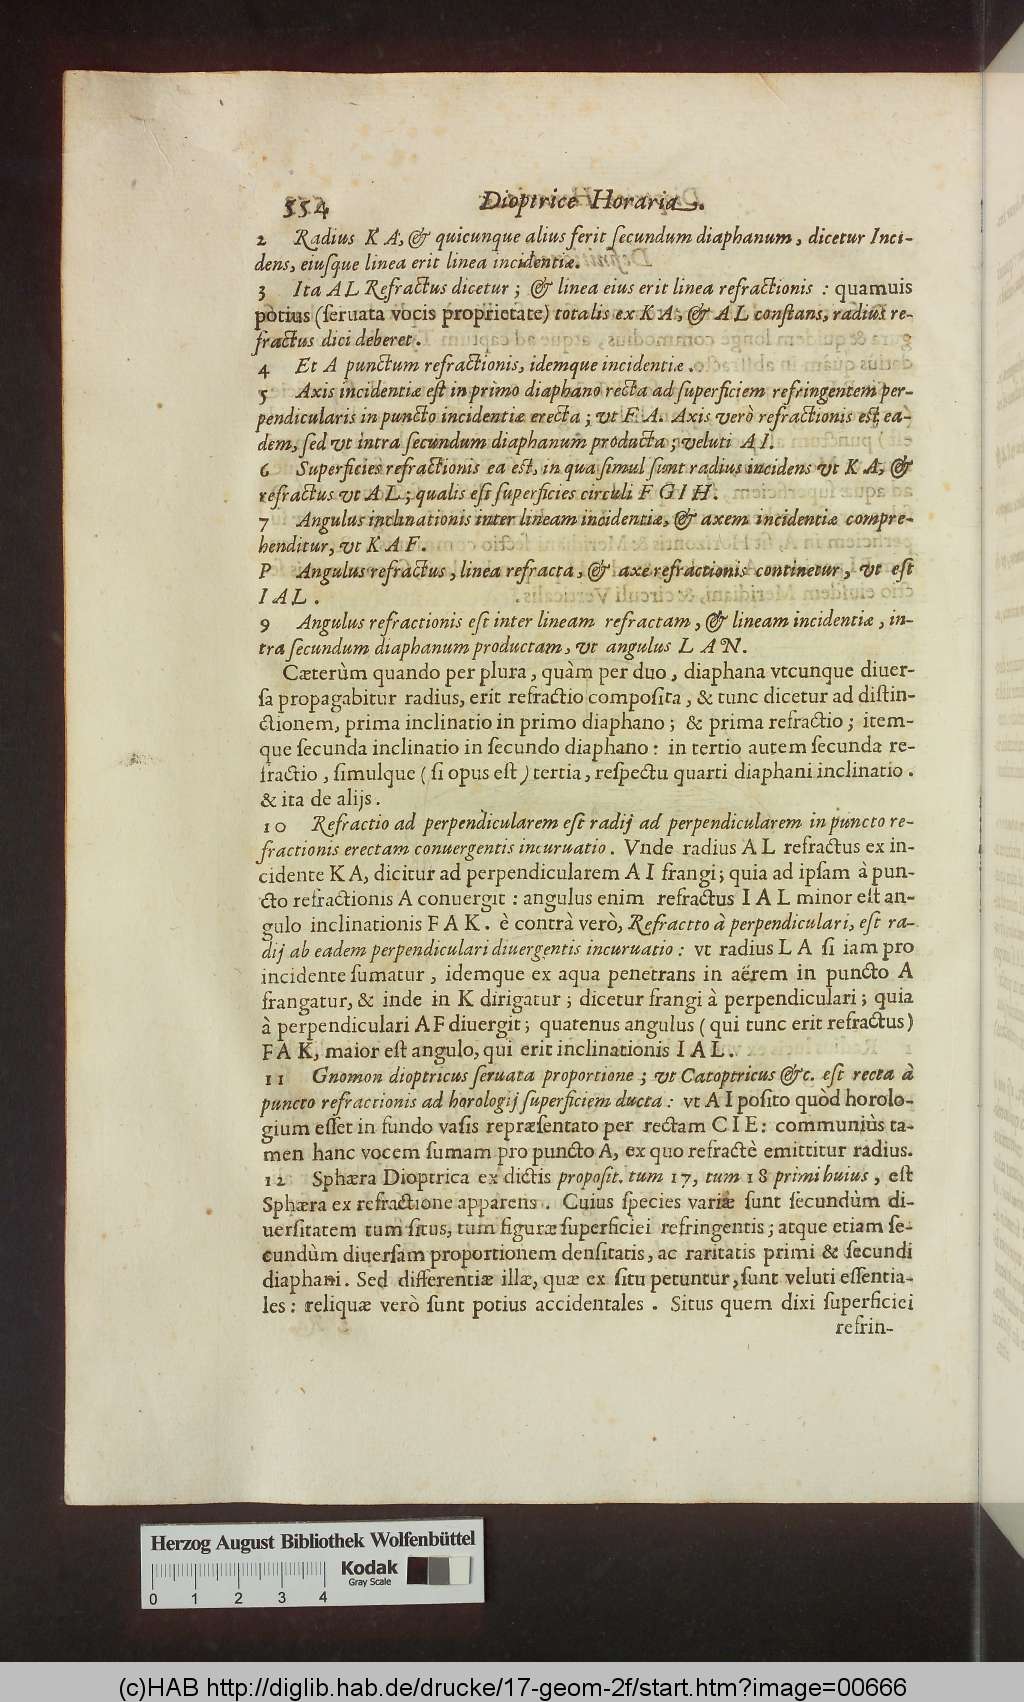 554 Dioptrice Horaria.
2 Radius K A, & quicunque alius ferit ſecundum diaphanum, dicetur Inci-
dens, eiuſque linea erit linea incidentiæ.
3 Ita A L Refractus dicetur; & linea eius erit linea refractionis: quamuis
potius (ſeruata vocis proprietate) totalis ex K A, & A L conſtans, radius re-
fractus dici deberet.
4 Et A punctum refractionis, idemque incidentiæ.
5 Axis incidentiæ eſt in primo diaphano recta ad ſuperficiem refringentem per-
pendicularis in puncto incidentiæ erecta; vt F A. Axis verò refractionis eſt ea-
dem, ſed vt intra ſecundum diaphanum producta; veluti A I.
6 Superficies refractionis ea eſt, in qua ſimul ſunt radius incidens vt K A, &
refractus vt A L; qualis eſt ſuperficies circuli F G I H.
7 Angulus inclinationis inter lineam incidentiæ, & axem incidentiæ compre-
henditur, vt K A F.
P Angulus refractus, linea refracta, & axe refractionis continetur, vt eſt
I A L.
9 Angulus refractionis eſt inter lineam refractam, & lineam incidentiæ, in-
tra ſecundum diaphanum productam, vt angulus L A N.
Cæterùm quando per plura, quàm per duo, diaphana vtcunque diuer-
ſa propagabitur radius, erit refractio compoſita, & tunc dicetur ad diſtin-
ctionem, prima inclinatio in primo diaphano; & prima refractio; item-
que ſecunda inclinatio in ſecundo diaphano: in tertio autem ſecunda re-
fractio, ſimulque (ſi opus eſt) tertia, reſpectu quarti diaphani inclinatio.
& ita de alijs.
10 Refractio ad perpendicularem eſt radij ad perpendicularem in puncto re-
fractionis erectam conuergentis incuruatio. Vnde radius A L refractus ex in-
cidente K A, dicitur ad perpendicularem A I frangi; quia ad ipſam à pun-
cto refractionis A conuergit: angulus enim refractus I A L minor eſt an-
gulo inclinationis F A K. è contrà verò, Refractto à perpendiculari, eſt ra-
dij ab eadem perpendiculari diuergentis incuruatio: vt radius L A ſi iam pro
incidente ſumatur, idemque ex aqua penetrans in aërem in puncto A
frangatur, & inde in K dirigatur; dicetur frangi à perpendiculari; quia
à perpendiculari A F diuergit; quatenus angulus (qui tunc erit refractus)
F A K, maior eſt angulo, qui erit inclinationis I A L.
11 Gnomon dioptricus ſeruata proportione; vt Catoptricus &c. eſt recta à
puncto refractionis ad horologij ſuperficiem ducta: vt A I poſito quòd horolo-
gium eſſet in fundo vaſis repræſentato per rectam C I E: communiùs ta-
men hanc vocem ſumam pro puncto A, ex quo refractè emittitur radius.
12 Sphæra Dioptrica ex dictis propoſit. tum 17, tum 18 primi huius, eſt
Sphæra ex refractione apparens. Cuius ſpecies variæ ſunt ſecundùm di-
uerſitatem tum ſitus, tum figuræ ſuperficiei refringentis; atque etiam ſe-
cundùm diuerſam proportionem denſitatis, ac raritatis primi & ſecundi
diaphani. Sed differentiæ illæ, quæ ex ſitu petuntur, ſunt veluti eſſentia-
les: reliquæ verò ſunt potius accidentales. Situs quem dixi ſuperficiei
refrin-
Herzog August Bibliothek Wolfenbüttel
Kodak
Gray Scale
0 1 2 3 4
(c)HAB http://diglib.hab.de/drucke/17-geom-2f/start.htm?image=00666